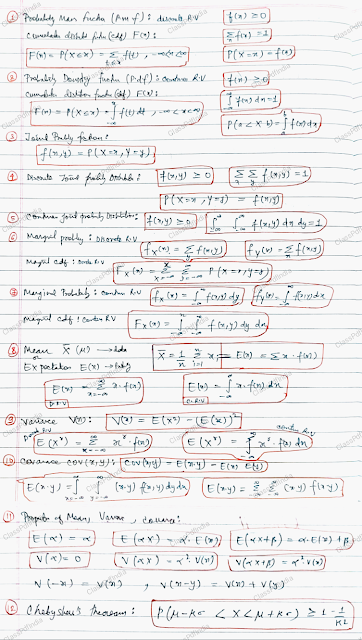 ① Probability Mass function (Pmf): discrete R.V f(x) ≥ 0
Cumulative distbt func (cdf) F(x): Σ f(x) = 1
F(x) = P(X≤x) = Σ f(t), -∞<x<∞ P(X=x) = f(x)
② Probability Density function (Pdf): continuous R.V f(x) ≥ 0
Cumulative distbtion func (cdf) F(x): ∫ f(x) dx = 1
F(x) = P(X≤x) = ∫ f(t) dt, -∞<x<∞ P(a<X<b) = ∫ f(x) dx
③ Joint Probility function:
f(x,y) = P(X=x, Y=y)
④ Discrete Joint probility Distribution: f(x,y) ≥ 0 Σ Σ f(x,y) = 1
P(X=x, Y=y) = f(x,y)
⑤ Continuous joint probility Distribution: f(x,y) ≥ 0 ∫ ∫ f(x,y) dx dy = 1
⑥ Marginal probility: Discrete R.V f_X(x) = Σ f(x,y) f_Y(y) = Σ f(x,y)
Marginal cdf: Discrete R.V F_X(x) = Σ Σ P(X=x, Y=y)
⑦ Marginal Probability: continuous R.V f_X(x) = ∫ f(x,y) dy f_Y(y) = ∫ f(x,y) dx
Marginal cdf: Contin R.V F_X(x) = ∫ ∫ f(x,y) dy dx
⑧ Mean X̄ (μ) → data X̄ = 1/n Σ x = E(x) = Σ x · f(x)
or
Expectation E(x) →
E(x) = Σ x · f(x) E(x) = ∫ x · f(x) dx
D.R.V C.R.V
⑨ Variance V(x): V(x) = E(x²) - (E(x))²
contin R.V
E(X^r) = Σ x^r · f(x) E(X^r) = ∫ x^r · f(x) dx
⑩ Covariance COV(x,y): COV(x,y) = E(x·y) - E(x) · E(y)
E(x·y) = ∫ ∫ (x·y) f(x,y) dy dx E(x·y) = Σ Σ (x·y) f(x,y)
⑪ Properties of Mean, Variance, Covariance:
E(α) = α E(αX) = α · E(X) E(αX+β) = α·E(X) + β
V(α) = 0 V(αX) = α² · V(X) V(αX+β) = α² · V(X)
V(-x) = V(x) , V(x-y) = V(x) + V(y)
Chebyshev's theorem: P(μ-kσ < X < μ+kσ) ≥ 1 - 1/k²